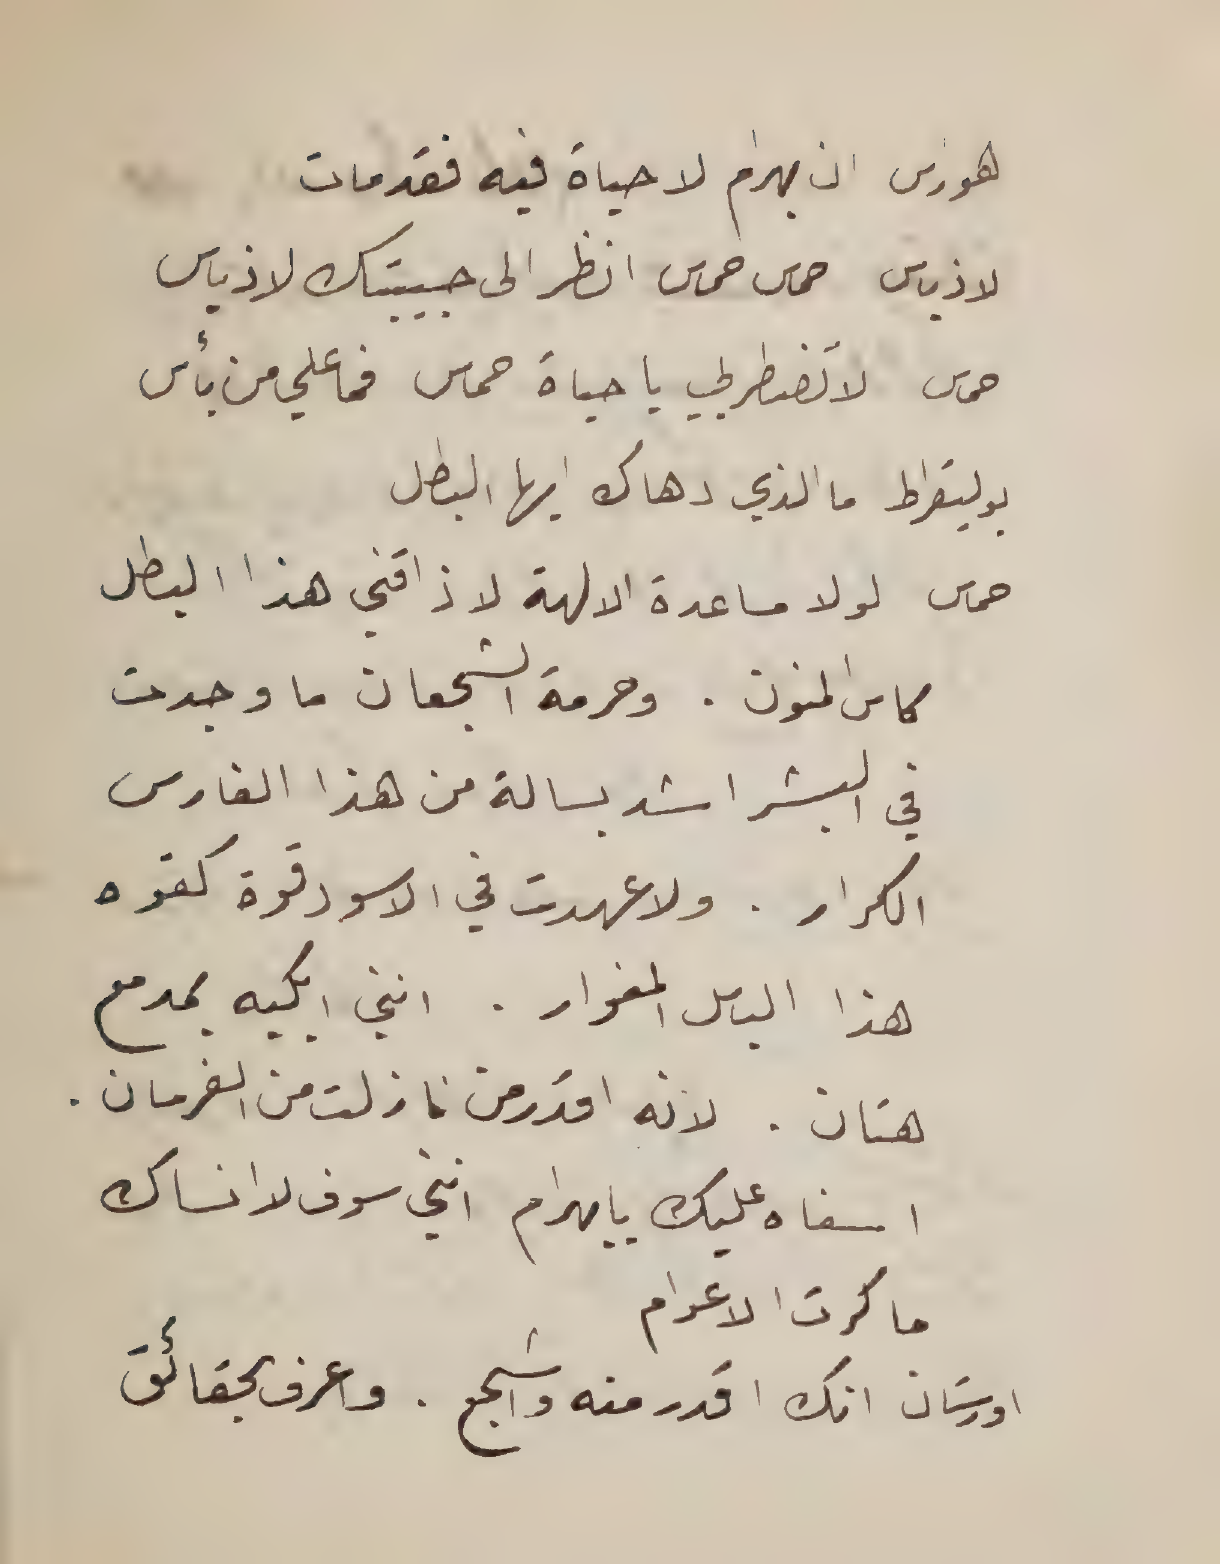 هوراس ان بهرام لا حياة فيه فقدمات
لاذياس حماس حماس انظر الى حبيبتك لاذياس
حماس لا تضطربي يا حياة حماس فما علي من بأس
بوليقراط ما الذي دهاك ايها البطل
حماس لولا مساعدة الالهة لاذاقني هذا البطل
كاس المنون . وحرمة الشجعان ما وجدت
في البشر اشد بسالة من هذا الفارس
الكرار . ولا عهدت في الاسود قوة كقوه
هذا الباسل المغوار . انني ابكيه بمدمع
هتان . لانه اقدر من نازلت من الفرسان .
اسفاه عليك يابهرام انني سوف لا انساك
ما كرت الاعوام
اورستان انك اقدر منه واشجع . واعرف بحقائق